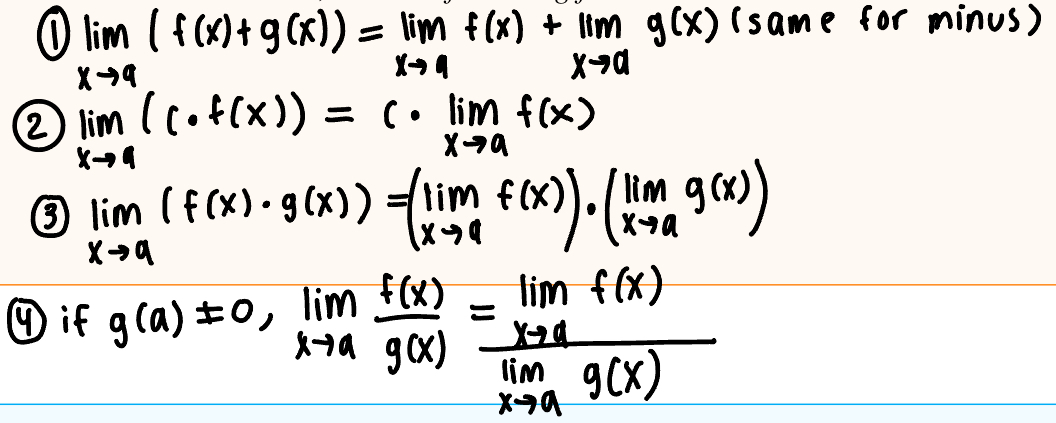 ① lim x→a (f(x)+g(x)) = lim x→a f(x) + lim x→a g(x) (same for minus)
② lim x→a (c·f(x)) = c· lim x→a f(x)
③ lim x→a (f(x)·g(x)) = (lim x→a f(x))·(lim x→a g(x))
④ if g(a) ≠ 0, lim x→a f(x)/g(x) = lim x→a f(x) / lim x→a g(x)